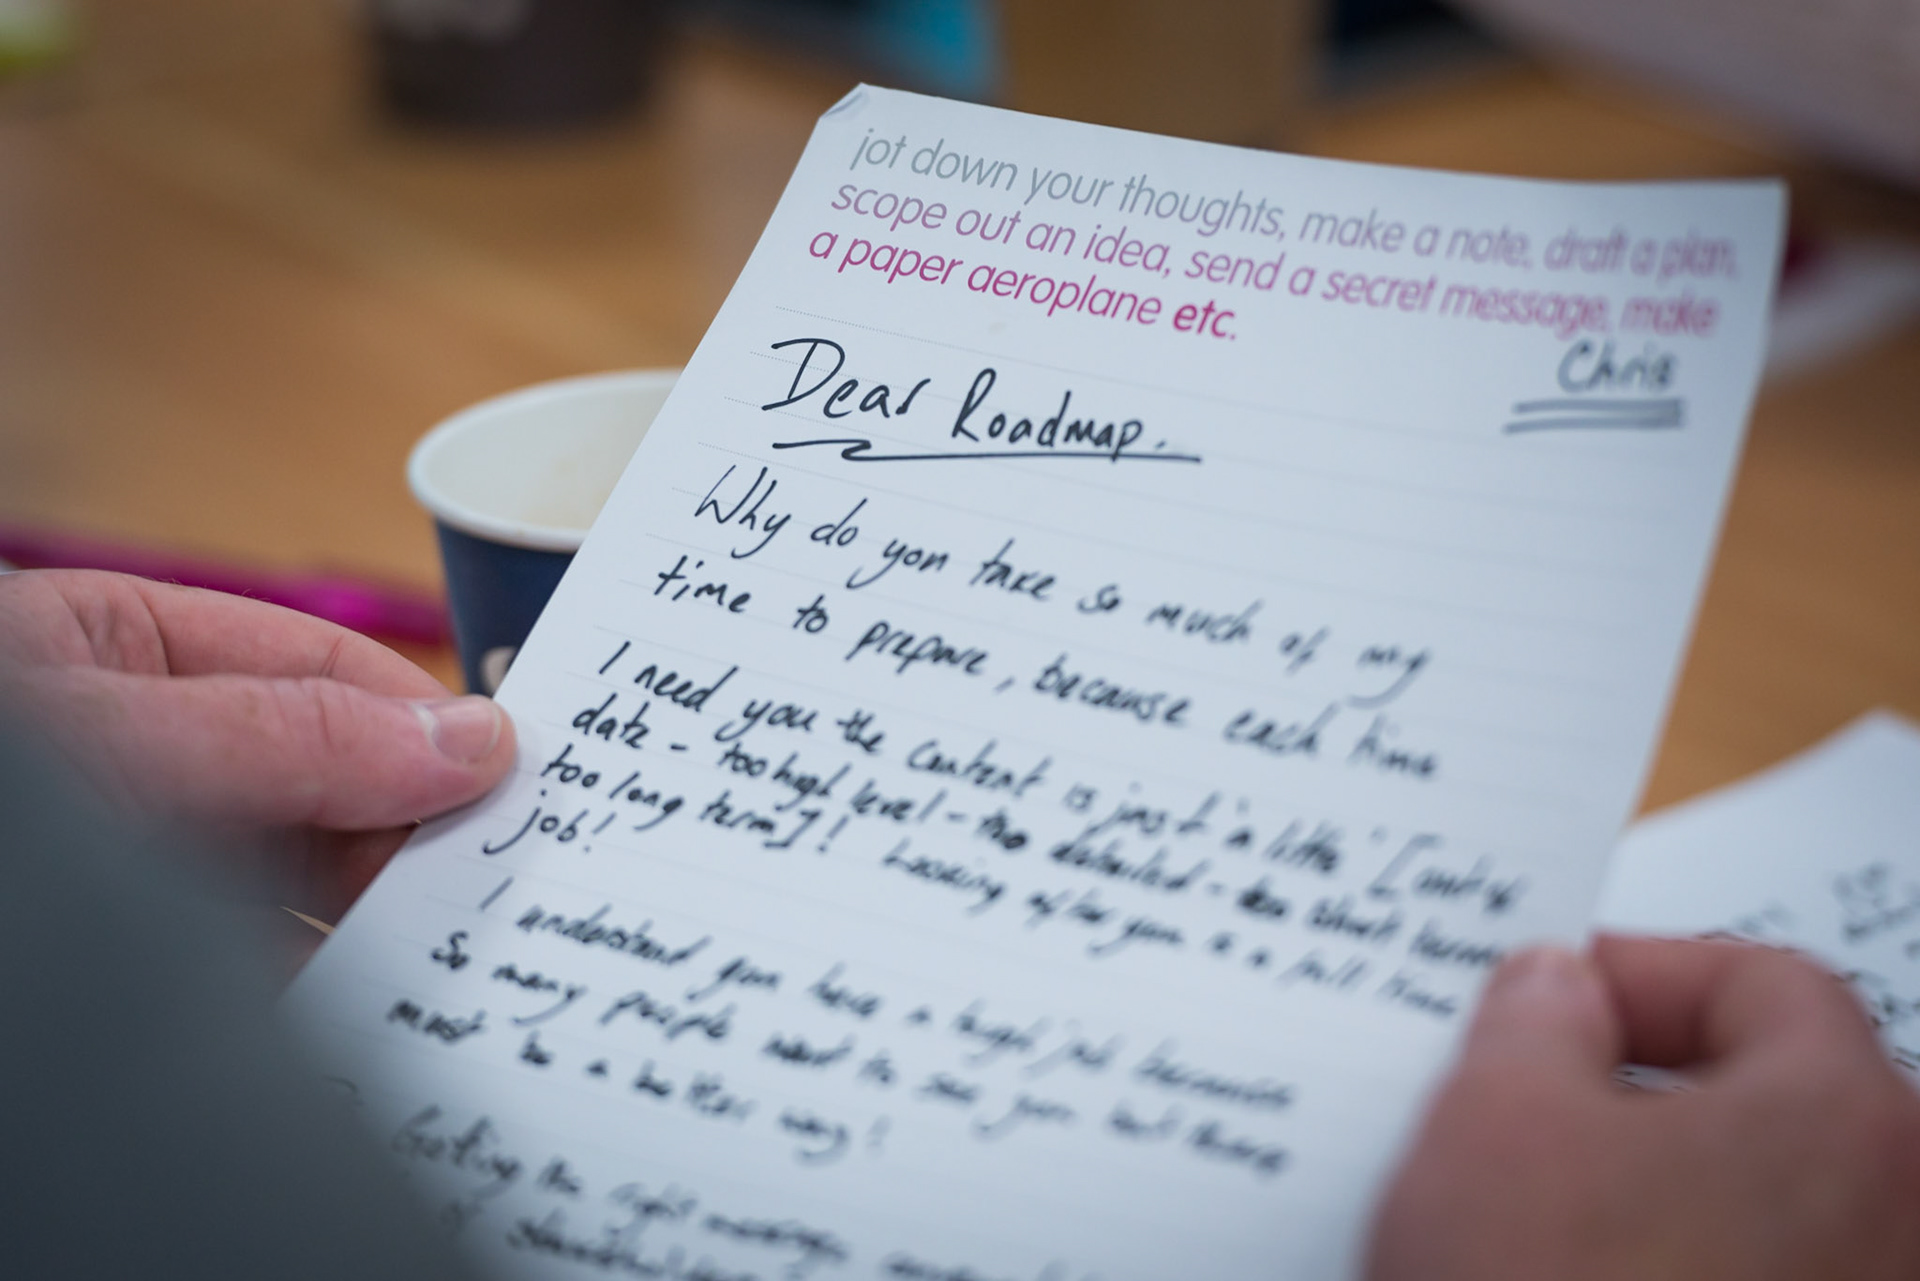 jot down your thoughts, make a note, draft a plan,
scope out an idea, send a secret message, make
a paper aeroplane etc.
Chris
Dear Roadmap.
Why do you take so much of my
time to prepare, because each time
I need you the content is just 'a little' [out of
date - too high level - too detailed - too short term
too long term]! Looking after you is a full time
job!
I understand you have a tough job because
so many people want to see you but there
must be a better way!
Getting the right